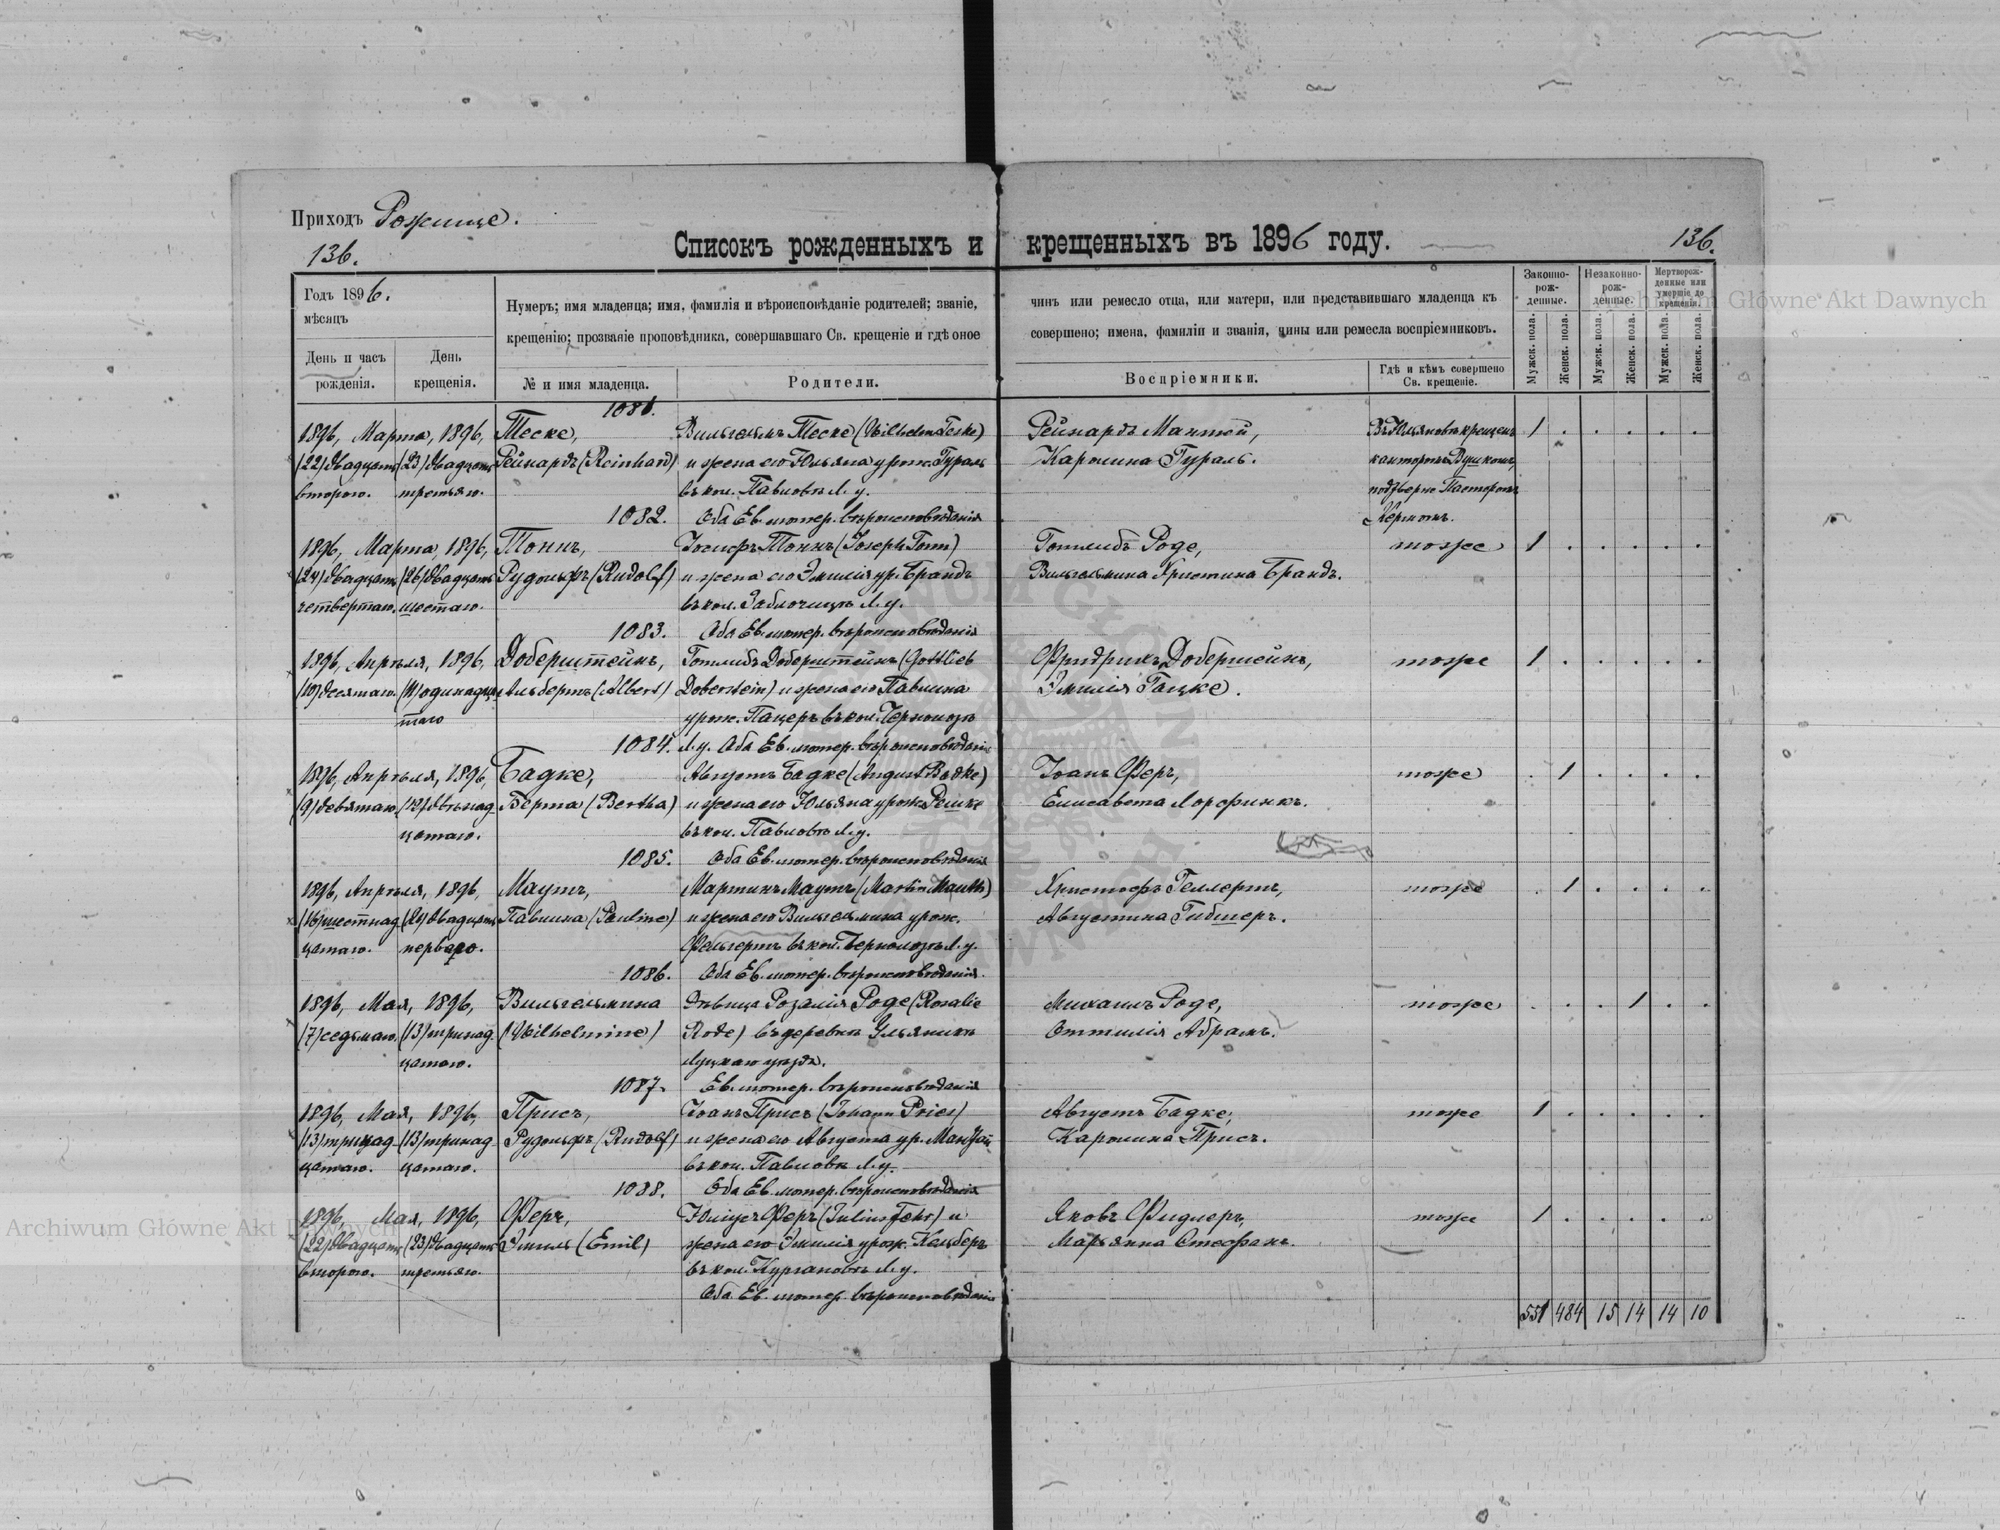 Приходъ Рожище.
136.
Списокъ рожденныхъ и крещенныхъ въ 1896 году.
136.
Годъ 1896.
мѣсяцъ
День и часъ рожденія.
День крещенія.
Нумеръ; имя младенца; имя, фамилія и вѣроисповѣданіе родителей; званіе, чинъ или ремесло отца, или матери, или представившаго младенца къ
крещенію; прозваніе проповѣдника, совершавшаго Св. крещеніе и гдѣ оное совершено; имена, фамиліи и званія, чины или ремесла воспріемниковъ.
№ и имя младенца.
Родители.
Воспріемники.
Гдѣ и кѣмъ совершено Св. крещеніе.
Законно-рож-денные.
Незаконно-рож-денные.
Мертворож-денные или умершіе до крещенія.
Мужск. пола.
Женск. пола.
Мужск. пола.
Женск. пола.
Мужск. пола.
Женск. пола.
1081.
1896, Марта, 1896, Теске, Вильгельмъ Теске (Wilhelm Teske) Рейнардъ Мантей, крещенъ 1 . . . . .
(22) двадцать (23) двадцать Рейнардъ (Reinhard) и жена его Юльяна урож. Гураль Каролина Гураль. канторомъ
второго. третьяго. въ кол. Павловкѣ Л. у. Пасторомъ
1082. Оба Ев. лютер. вѣроисповѣданія Керномъ.
1896, Марта, 1896, Тоннъ, Іосифъ Тоннъ (Joseph Tonn) Готлибъ Роде, тоже 1 . . . . .
(24) двадцать (26) двадцать Рудольфъ (Rudolf) и жена его Эмилія ур. Брандъ Вильгельмина Христина Брандъ.
четвертаго. шестаго. въ кол. Заблочицы Л. у.
1083. Оба Ев. лютер. вѣроисповѣданія
1896, Апрѣля, 1896, Доберштейнъ, Готлибъ Доберштейнъ (Gottlieb Фридрихъ Доберштейнъ, тоже 1 . . . . .
(10) десятаго. (11) одинадца Альбертъ (Albert) Doberstein) и жена его Павлина Эмилія Гацке.
таго урож. Пацеръ въ кол.
1084. Л. у. Оба Ев. лютер. вѣроисповѣданія
1896, Апрѣля, 1896, Бадке, Августъ Бадке (August Badke) Іоанъ Феръ, тоже . 1 . . . .
(9) девятаго. (12) двѣнад- Берта (Bertha) и жена его Юльяна урож. Елисавета
цатаго. въ кол. Павловкѣ Л. у.
1085. Оба Ев. лютер. вѣроисповѣданія
1896, Апрѣля, 1896, Маутъ, Мартинъ Маутъ (Martin Mauth) Христофъ Геллертъ, тоже . 1 . . . .
(16) шестнад (21) двадцать Павлина (Pauline) и жена его Вильгельмина урож. Августина
цатаго. перваго. въ кол. Л. у.
1086. Оба Ев. лютер. вѣроисповѣданія.
1896, Мая, 1896, Вильгельмина Дѣвица Розалія Роде (Rosalie Михаилъ Роде, тоже . . . 1 . .
(7) седьмаго. (13) тринад- (Wilhelmine) Rode) въ деревнѣ Ульяники Оттилія Абрамъ.
цатаго. Луцкаго уѣзда.
1087. Ев. лютер. вѣроисповѣданія
1896, Мая, 1896, Присъ, Іоанъ Присъ (Johann Pries) Августъ Бадке, тоже 1 . . . . .
(13) тринад- (13) тринад- Рудольфъ (Rudolf) и жена его Августа ур. Каролина Присъ.
цатаго. цатаго. въ кол. Павловкѣ Л. у.
1088. Оба Ев. лютер. вѣроисповѣданія
1896, Мая, 1896, Феръ, Юліусъ Феръ (Julius Fehr) и Яковъ Фидлеръ, тоже 1 . . . . .
(22) двадцать (23) двадцать Эмиль (Emil) жена его Эмилія урож. Кельберъ Марьянна Стефанъ.
второго. третьяго. въ кол. Кургановкѣ Л. у.
Оба Ев. лютер. вѣроисповѣданія
551 484 15 14 14 10
Archiwum Główne Akt Dawnych
Archiwum Główne Akt Dawnych